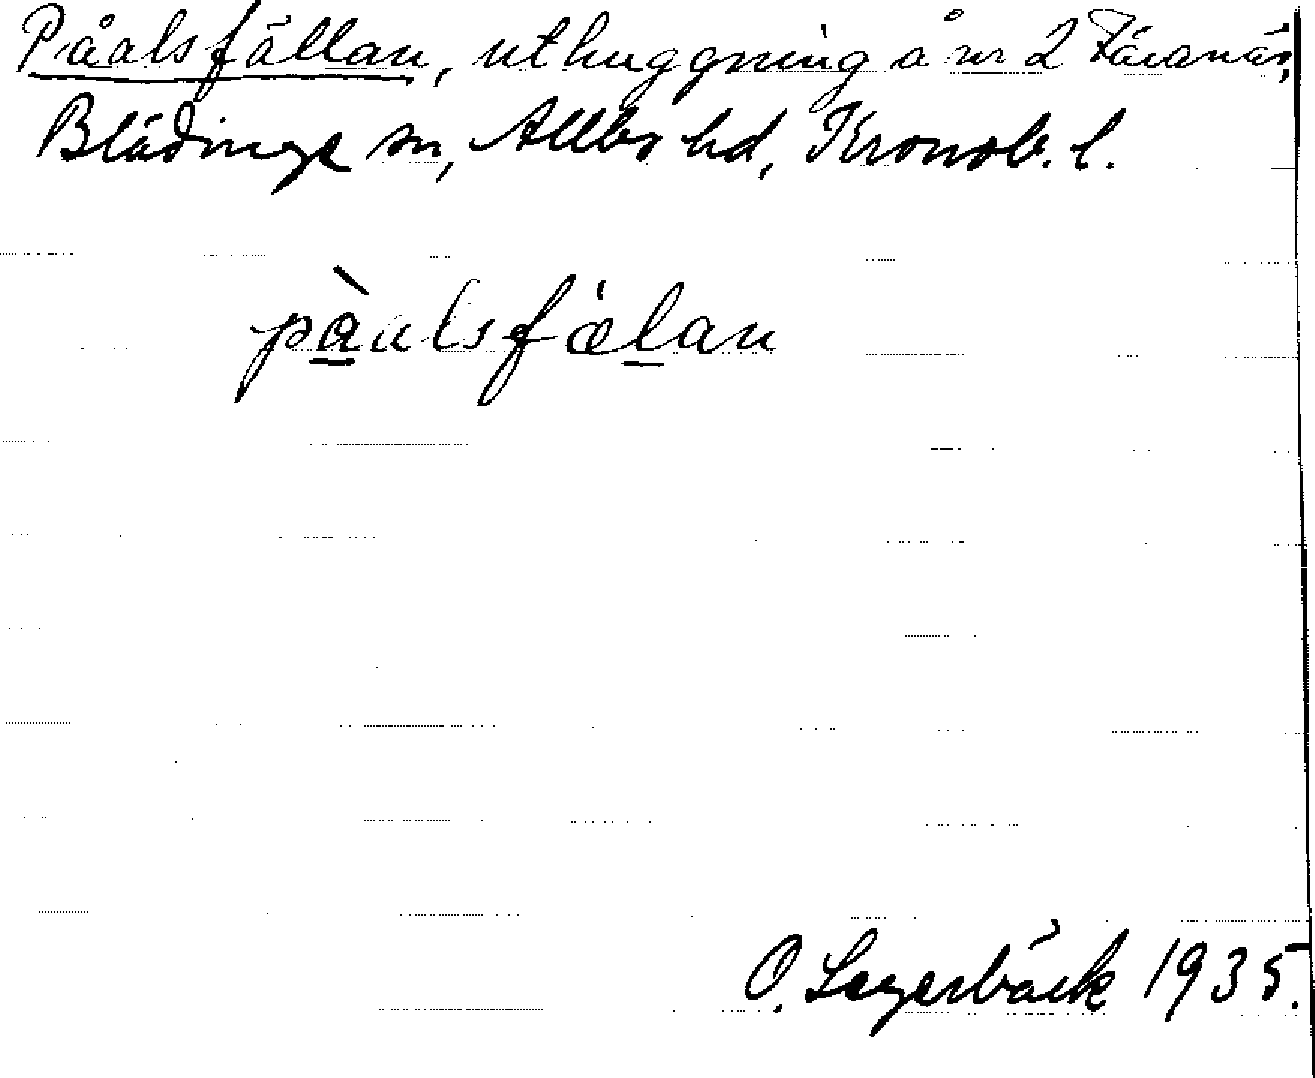 Påalsfällan, uthuggning å nr 2 Täranäs,
Blädinge sn, Allbo hd, Kronob. l.
pàalsfælan
O. Lagerbäck 1935.